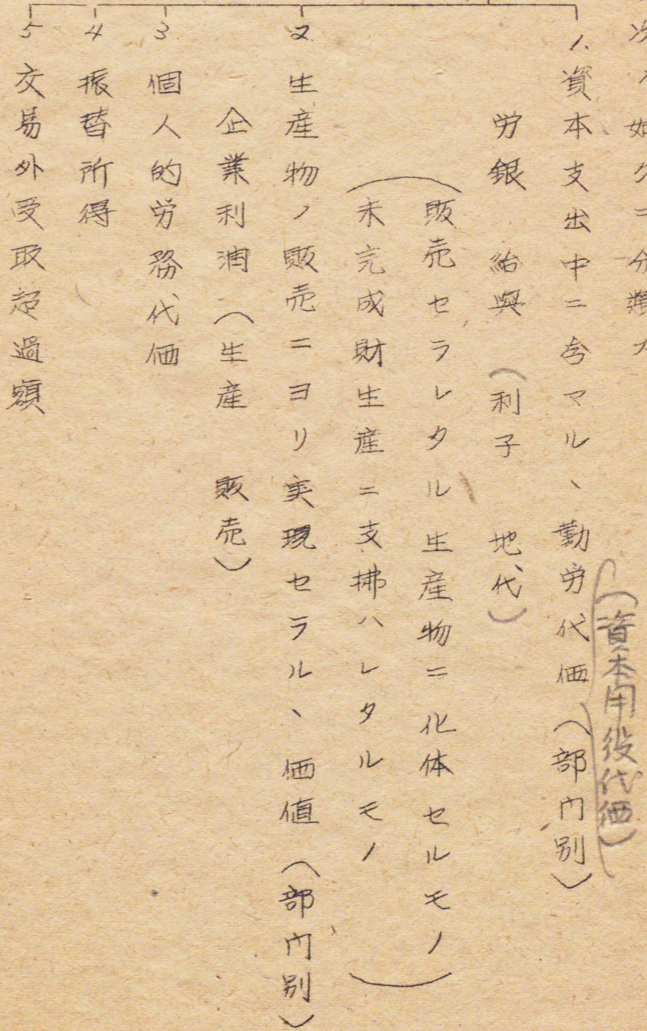 次ノ如クニ分類ス
1、資本支出中ニ含マル、勤労代価（部門別）
（資本用役代価）
労銀　給與（利子　地代）
（販売セラレタル生産物ニ化体セルモノ
未完成財生産ニ支拂ハレタルモノ）
2 生産物ノ販売ニヨリ実現セラル、価値（部門別）
企業利潤（生産　販売）
3 個人的労務代価
4 振替所得
5 交易外受取超過額